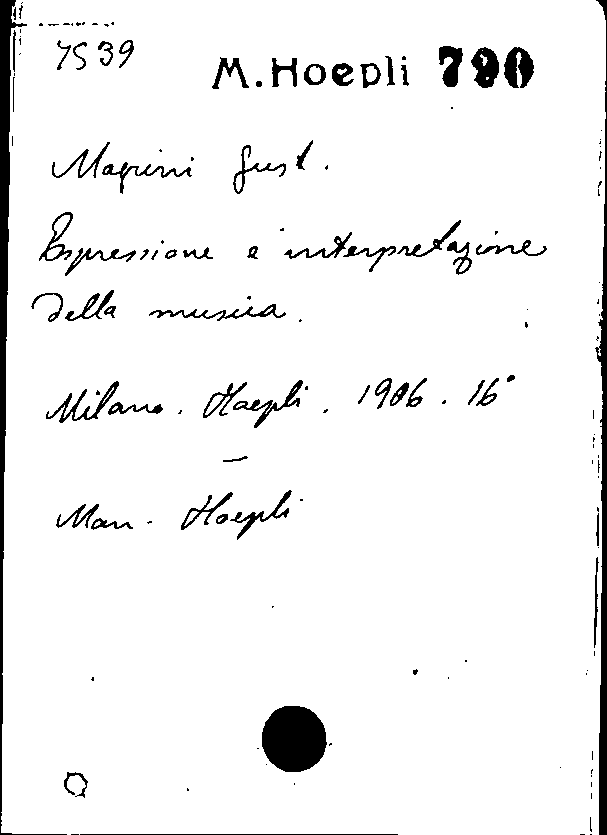 7539
M. Hoepli 790
Magrini Gust.
Espressione e interpretazione
della musica.
Milano. Hoepli. 1906. 16°
Man. Hoepli